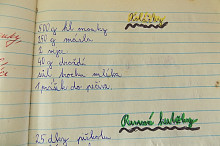 Koláčky
500 g hl. mouky
250 g másla
2 vejce
40 g droždí
sůl, trochu mléka
1 prášek do pečiva.
Rumové kuličky
25 dkg